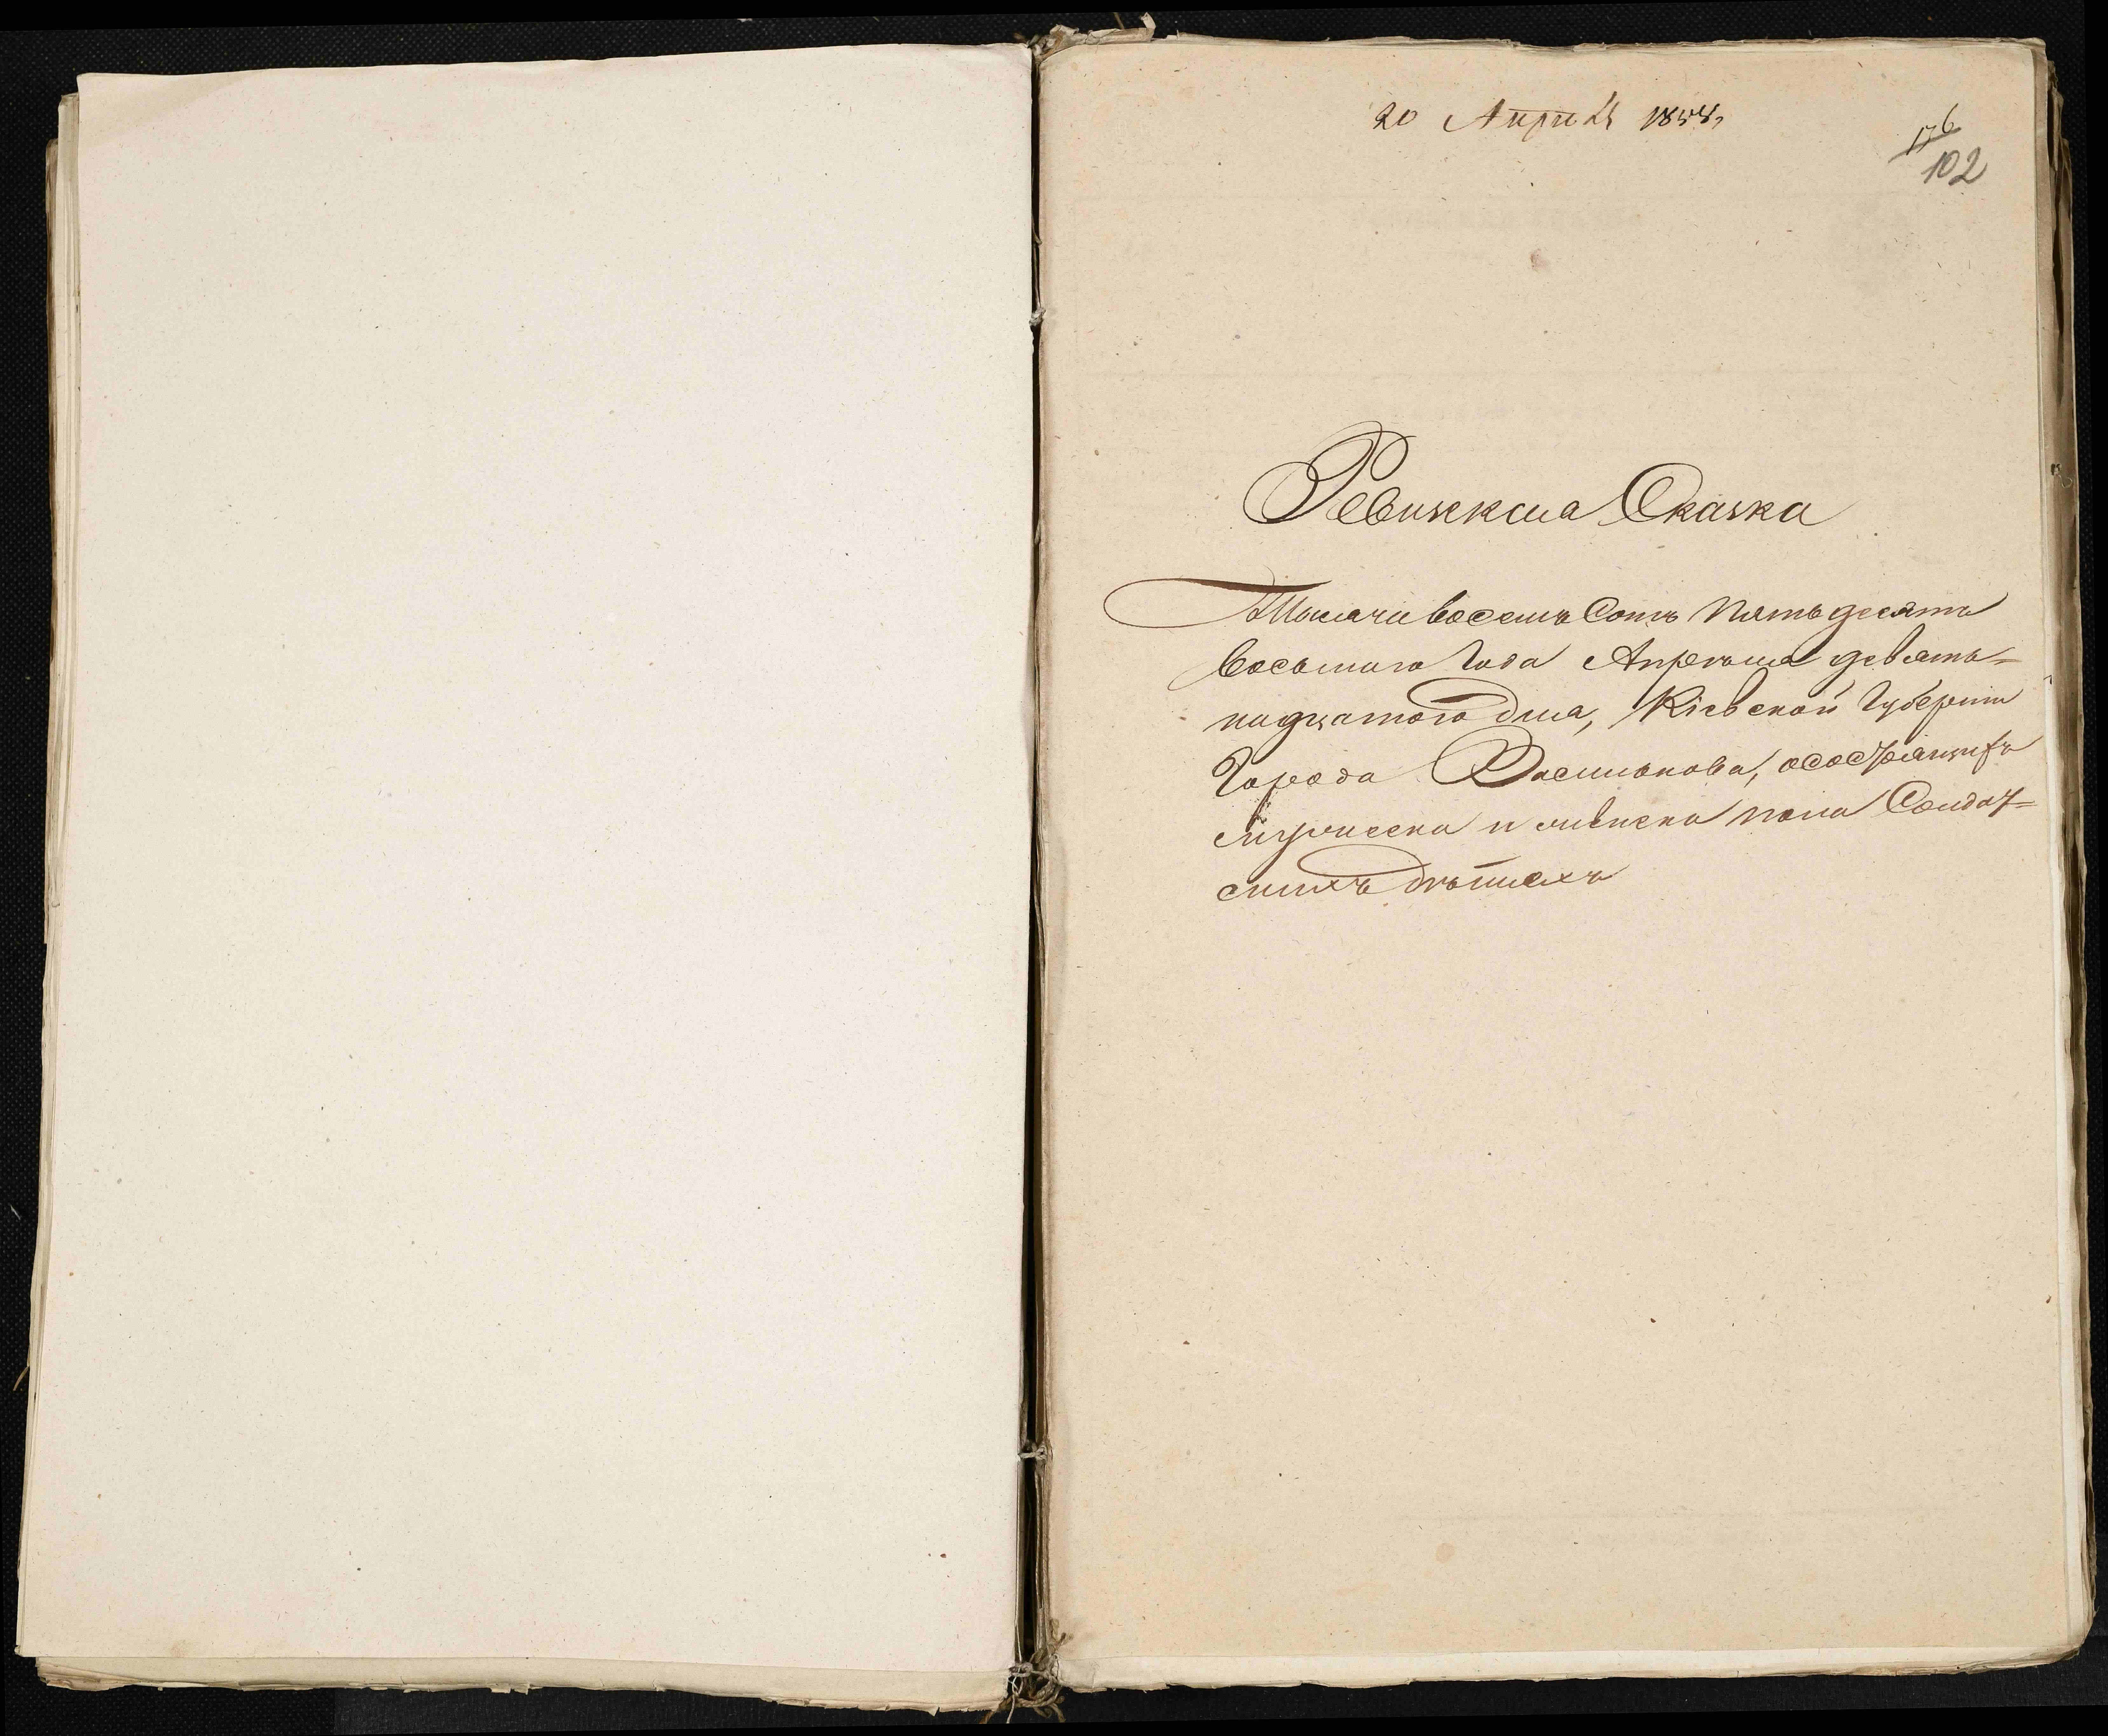 20 Апреля 1858,
176
102
Ревизская Сказка
Тысяча восемь Сотъ Пятьдесятъ
восьмаго Года Апреля девять=
надцатого дня, Кіевской Губерніи
Города Василькова, о состоящихъ
мужеска и женска пола Солдат=
скихъ дѣтяхъ